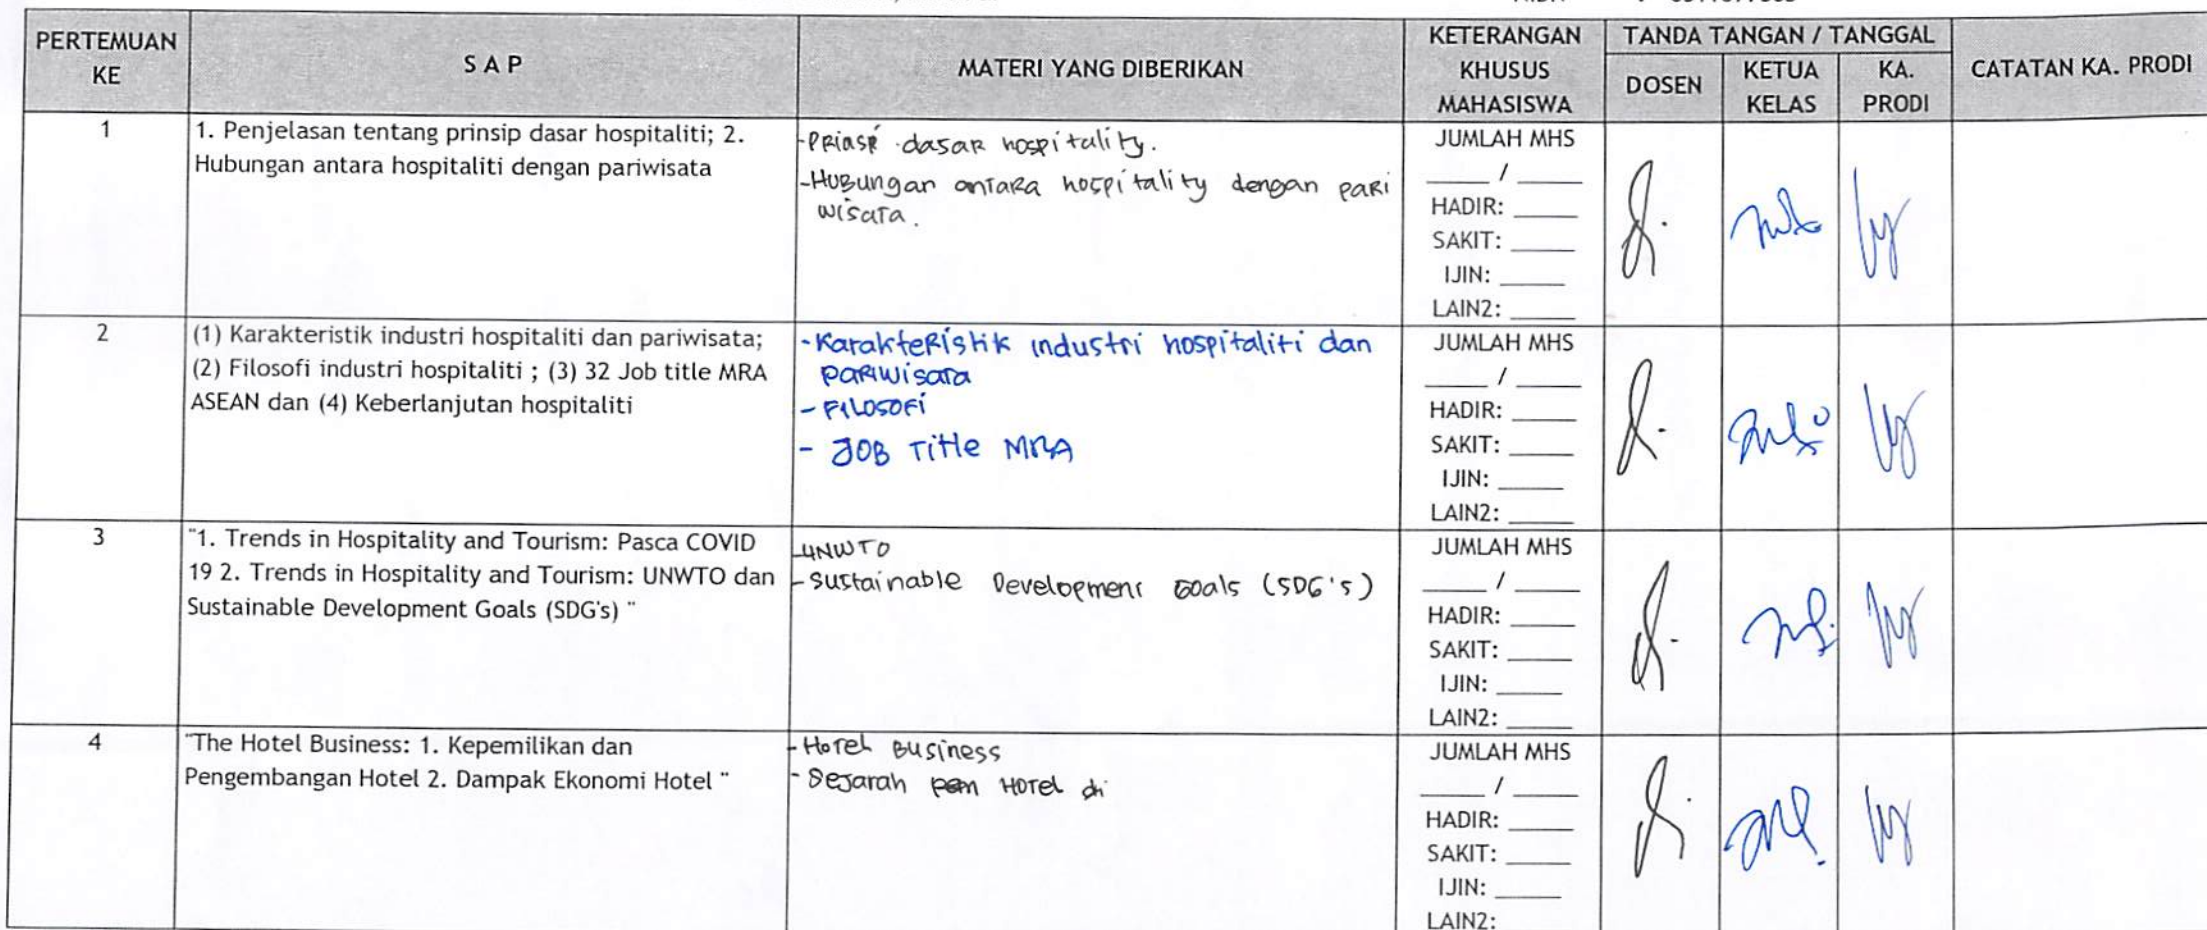 PERTEMUAN KE
S A P
MATERI YANG DIBERIKAN
KETERANGAN KHUSUS MAHASISWA
TANDA TANGAN / TANGGAL
DOSEN
KETUA KELAS
KA. PRODI
CATATAN KA. PRODI
1
1. Penjelasan tentang prinsip dasar hospitaliti; 2.
Hubungan antara hospitaliti dengan pariwisata
dasar hospitality.
-Hubungan antara hospitality dengan pari
wisata.
JUMLAH MHS
____ / ____
HADIR: ____
SAKIT: ____
IJIN: ____
LAIN2: ____
2
(1) Karakteristik industri hospitaliti dan pariwisata;
(2) Filosofi industri hospitaliti ; (3) 32 Job title MRA
ASEAN dan (4) Keberlanjutan hospitaliti
-Karakteristik industri hospitaliti dan
pariwisata
- Filosofi
- JOB Title MRA
JUMLAH MHS
____ / ____
HADIR: ____
SAKIT: ____
IJIN: ____
LAIN2: ____
3
"1. Trends in Hospitality and Tourism: Pasca COVID
19 2. Trends in Hospitality and Tourism: UNWTO dan
Sustainable Development Goals (SDG's) "
-UNWTO
-Sustainable Development Goals (SDG's)
JUMLAH MHS
____ / ____
HADIR: ____
SAKIT: ____
IJIN: ____
LAIN2: ____
4
"The Hotel Business: 1. Kepemilikan dan
Pengembangan Hotel 2. Dampak Ekonomi Hotel "
-Hotel Business
-Sejarah Hotel di
JUMLAH MHS
____ / ____
HADIR: ____
SAKIT: ____
IJIN: ____
LAIN2: